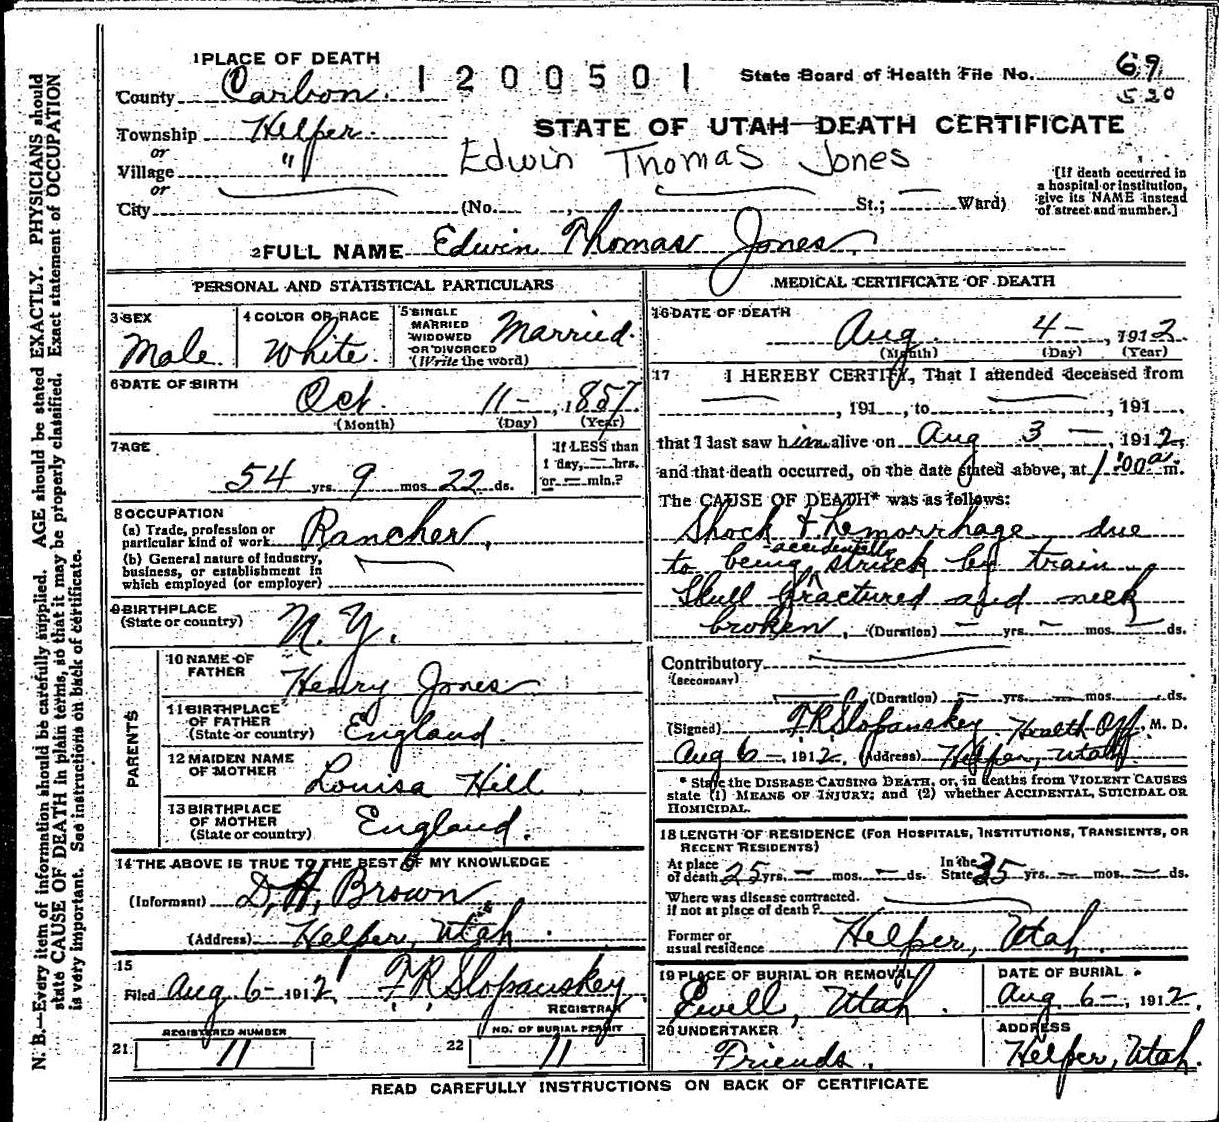 1 PLACE OF DEATH
1200501
State Board of Health File No. 69
520
County Carbon.
Township Helper.
or
Village "
or
City (No. , St.; Ward)
STATE OF UTAH—DEATH CERTIFICATE
Edwin Thomas Jones
[If death occurred in
a hospital or institution,
give its NAME instead
of street and number.]
2 FULL NAME Edwin Thomas Jones,
PERSONAL AND STATISTICAL PARTICULARS
3 SEX
Male.
4 COLOR OR RACE
White.
5 SINGLE
MARRIED
WIDOWED
OR DIVORCED
(Write the word)
Married.
6 DATE OF BIRTH
Oct. 11—, 1857
(Month) (Day) (Year)
7 AGE
54 yrs. 9 mos. 22 ds.
If LESS than
1 day, — hrs.
or — min.?
8 OCCUPATION
(a) Trade, profession or
particular kind of work Rancher,
(b) General nature of industry,
business, or establishment in
which employed (or employer)
9 BIRTHPLACE
(State or country) N. Y.
PARENTS
10 NAME OF
FATHER Henry Jones
11 BIRTHPLACE
OF FATHER
(State or country) England.
12 MAIDEN NAME
OF MOTHER Louisa Hill
13 BIRTHPLACE
OF MOTHER
(State or country) England.
14 THE ABOVE IS TRUE TO THE BEST OF MY KNOWLEDGE
(Informant) D. H. Brown
(Address) Helper, Utah.
15
Filed Aug 6— 1912, F R Slopanskey
REGISTRAR
REGISTERED NUMBER
21 11
NO. OF BURIAL PERMIT
22 11
MEDICAL CERTIFICATE OF DEATH
16 DATE OF DEATH
Aug 4—, 1912.
(Month) (Day) (Year)
17 I HEREBY CERTIFY, That I attended deceased from
—, 191 , to —, 191 ,
that I last saw him alive on Aug 3—, 1912,
and that death occurred, on the date stated above, at 1:00 a m.
The CAUSE OF DEATH* was as follows:
Shock & hemorrhage due
to being accidentally struck by train
Skull fractured and neck
broken. (Duration) — yrs. — mos. — ds.
Contributory
(SECONDARY)
(Duration) — yrs. — mos. — ds.
(Signed) F. R. Slopanskey Health Off. M. D.
Aug 6— 1912. (Address) Helper, Utah.
* State the DISEASE CAUSING DEATH, or, in deaths from VIOLENT CAUSES
state (1) MEANS OF INJURY; and (2) whether ACCIDENTAL, SUICIDAL OR
HOMICIDAL.
18 LENGTH OF RESIDENCE (FOR HOSPITALS, INSTITUTIONS, TRANSIENTS, OR
RECENT RESIDENTS)
At place
of death 25 yrs. — mos. — ds.
In the
State 25 yrs. — mos. — ds.
Where was disease contracted.
if not at place of death?
Former or
usual residence Helper, Utah.
19 PLACE OF BURIAL OR REMOVAL
Ewell, Utah.
DATE OF BURIAL
Aug. 6—, 1912.
20 UNDERTAKER
Friends.
ADDRESS
Helper, Utah.
READ CAREFULLY INSTRUCTIONS ON BACK OF CERTIFICATE
N. B.—Every item of information should be carefully supplied. AGE should be stated EXACTLY. PHYSICIANS should
state CAUSE OF DEATH in plain terms, so that it may be properly classified. Exact statement of OCCUPATION
is very important. See instructions on back of certificate.